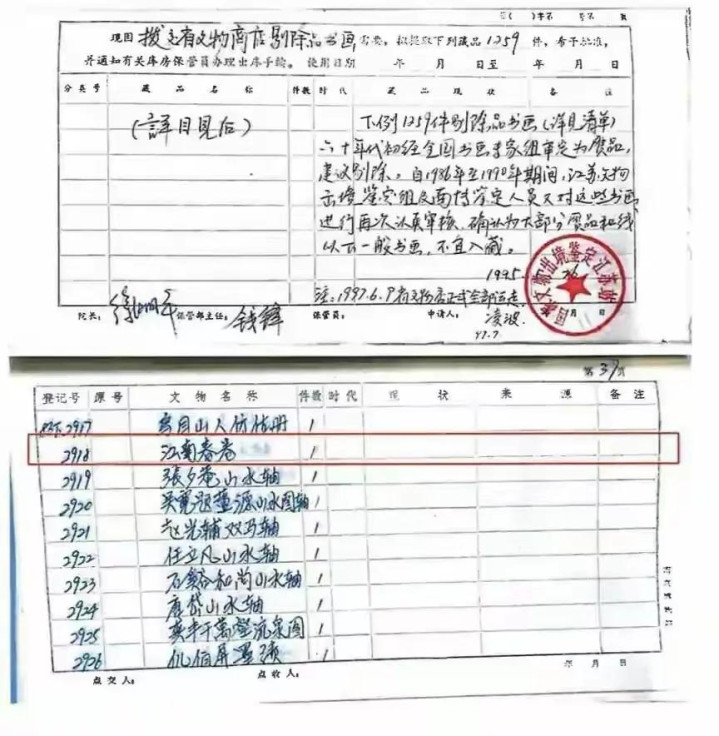 现因 拨交省文物商店剔除品书画 需要，拟提取下列藏品 1259 件，希予批准，
并通知有关库房保管员办理出库手续。 使用日期 年 月 日至 年 月 日
分类号 藏品名称 件数 时代 藏品现状 备注
(詳目見后)
下例1259件剔除品书画(详见清单)
六十年代初经全国书画专家组审定为废品,
建议剔除。自1986年至1990年期间,江苏文物
出境鉴定组及南博鉴定人员又对这些书画
进行再次认真审核,确认为大部分废品和线
以下一般书画,不宜入藏。
1995.
国家文物出境鉴定江苏站
月 日
注:1997.6.9省文物店正式全部运走
院长： 徐湖平 保管部主任： 钱锋 保管员： 申请人： 凌波
97.7
第 37 页
登记号 原号 文物名称 件数 时代 现状 来源 备注
2917 仿古册 1
2918 江南春卷 1
2919 張夕庵山水轴 1
2920 吴寬题董源山水图轴 1
2921 赵光辅双马轴 1
2922 任立凡山水轴 1
2923 石谿和尚山水轴 1
2924 唐岱山水轴 1
2925 流泉图 1
2926 仇伯屏墨 1
点交人： 点收人： 年 月 日